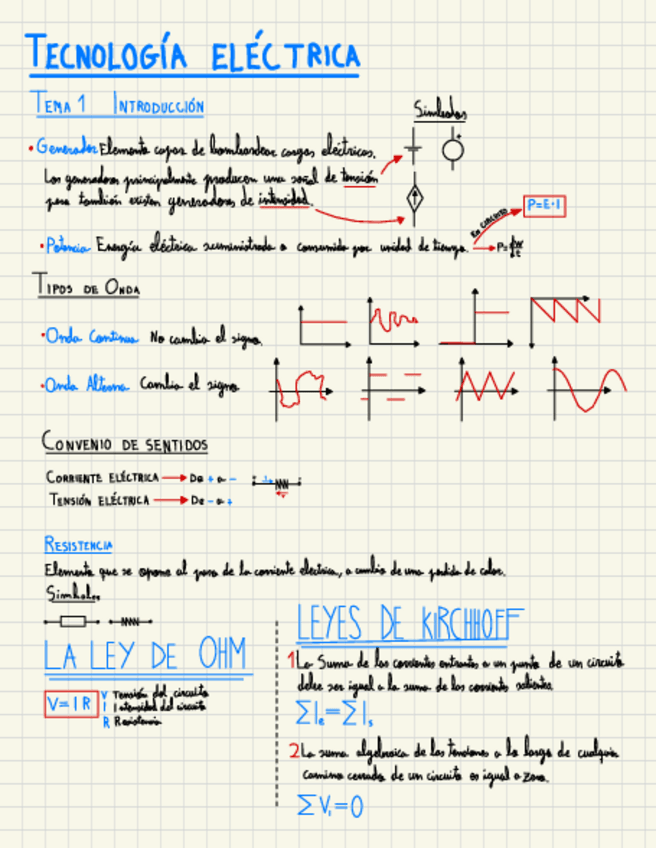 TECNOLOGÍA ELÉCTRICA
TEMA 1 INTRODUCCIÓN
Simbolos
• Generador Elemento capaz de bombardear cargas eléctricas.
Los generadores principalmente producen una señal de tensión
pero también existen generadores de intensidad.
EN CIRCUITO
P=E·I
• Potencia Energía eléctrica suministrada o consumida por unidad de tiempo. → P=
TIPOS DE ONDA
• Onda Continua No cambia el signo.
• Onda Alterna Cambia el signo
CONVENIO DE SENTIDOS
CORRIENTE ELÉCTRICA → De + a -
TENSIÓN ELÉCTRICA → De - a +
RESISTENCIA
Elemento que se opone al paso de la corriente electrica, a cambio de una perdida de calor.
Simbolos
LA LEY DE OHM
V=IR
V Tensión del circuito
I Intensidad del circuito
R Resistencia
LEYES DE KIRCHHOFF
1 La Suma de las corrientes entrantes a un punto de un circuito
debe ser igual a la suma de las corrientes salientes.
∑Ie=∑Is
2 La suma algebraica de las tensiones a lo largo de cualquier
camino cerrado de un circuito es igual a zero.
∑Vi=0